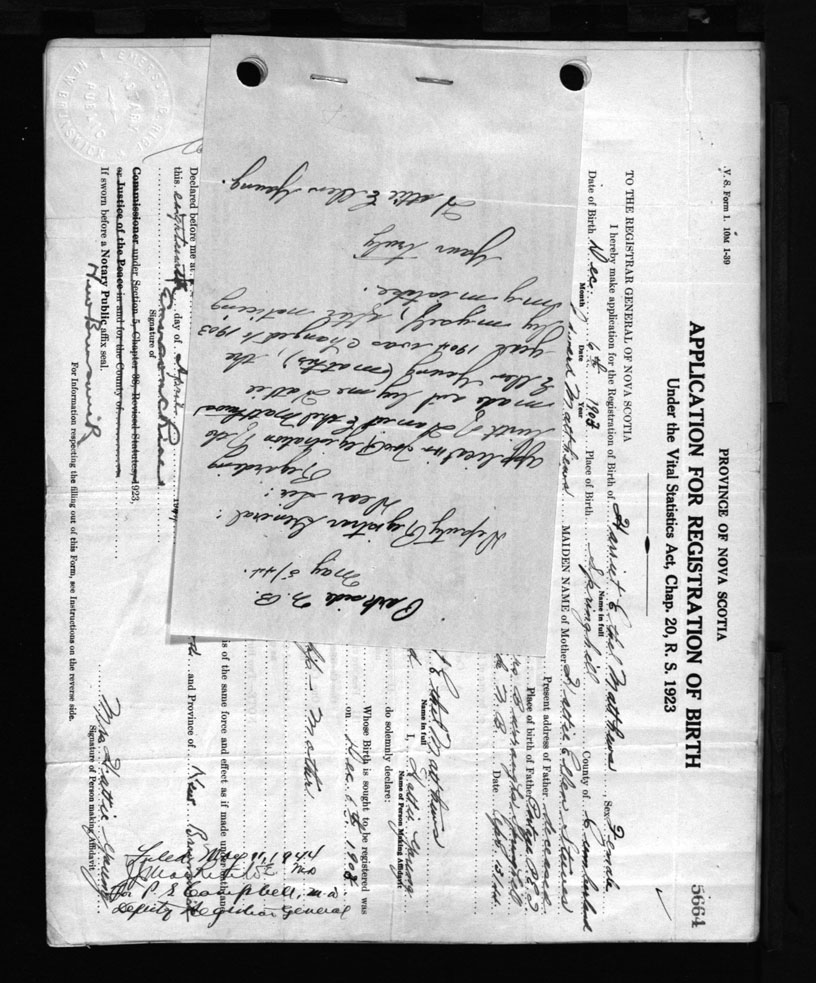 V. S. Form 1. 10M 1-39
PROVINCE OF NOVA SCOTIA
5664
APPLICATION FOR REGISTRATION OF BIRTH
Under the Vital Statistics Act, Chap. 20, R. S. 1923
TO THE REGISTRAR GENERAL OF NOVA SCOTIA
I hereby make application for the Registration of Birth of Harriet Ethel Matthews Sex Female
Name in full
Date of Birth Dec. 6th 1903 Place of Birth Springhill County of Cumberland
Month Date Year
Edward Matthews MAIDEN NAME of Mother Hattie Ellen
Present address of Father deceased
Place of birth of Father P.E.I.
Springhill
N.B. Date Apr. 15/44
t Ethel Matthews
Name in full
I, Hattie Young
Name of Person Making Affidavit
do solemnly declare:
Whose Birth is sought to be registered was
on Dec. 6, 1903
Mother
is of the same force and effect as if made under
and Province of New Brunswick
Declared before me at
this day of April
Signature of
Commissioner under Section 5, Chapter 38, Revised Statutes 1923,
or Justice of the Peace in and for the County of
If sworn before a Notary Public affix seal.
New Brunswick
Mrs Hattie Young
Signature of Person making Affidavit
For Information respecting the filling out of this Form, see Instructions on the reverse side.
Filed May 11, 1944
for P. E. Campbell, M.D.
Deputy Registrar General
NOTARY PUBLIC
NEW BRUNSWICK
N.B.
May 5/44.
Deputy Registrar General:
Dear Sir:
Regarding
application for Registration of
birth of Harriet Ethel Matthews
made out by me Hattie
Ellen Young (mother), the
year 1904 was changed to 1903
by myself, after noticing
my mistake.
Your truly
Hattie Ellen Young.